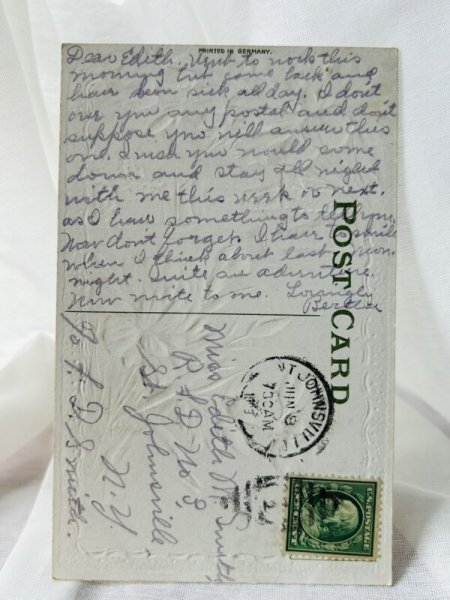 PRINTED IN GERMANY.
Dear Edith. Went to work this
morning but come back and
have been sick all day. I don't
owe you any postal and don't
suppose you will answer this
one. I wish you would come
down and stay all night
with me this week or next.
as I have something to tell you.
Now don't forget. I have to smile
when I think about last
night. Quite an adventure.
Now write to me. Lovingly
Bertha
POST CARD
Miss Edith Smith
R F D No 3,
St. Johnsville,
N. Y.
D. Smith.
ST JOHNSVILLE
JUN 8
7 30 AM
U.S. POSTAGE